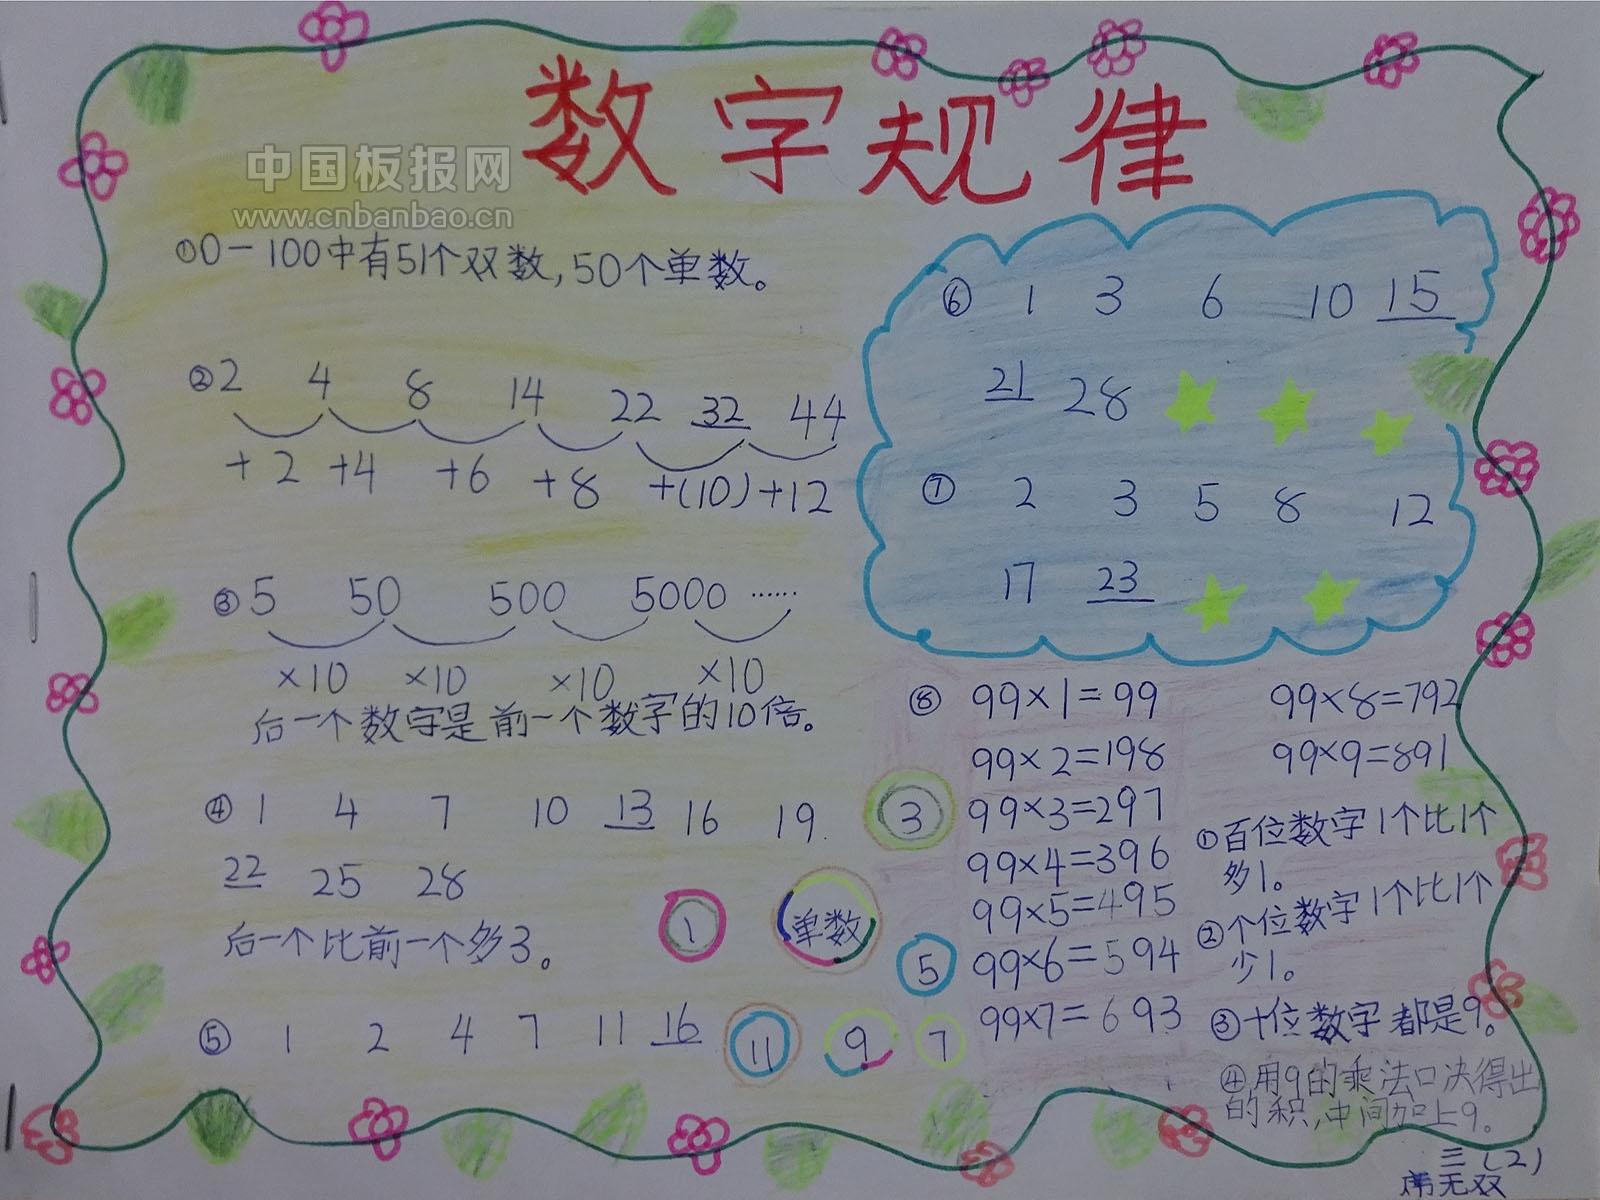 数字规律
中国板报网
www.cnbanbao.cn
①0－100中有51个双数,50个单数。
②2 4 8 14 22 32 44
+2 +4 +6 +8 +(10) +12
③5 50 500 5000 ……
×10 ×10 ×10 ×10
后一个数字是前一个数字的10倍。
④1 4 7 10 13 16 19.
22 25 28
后一个比前一个多3。
⑤ 1 2 4 7 11 16
⑥ 1 3 6 10 15
21 28
⑦ 2 3 5 8 12
17 23
3
1
单数
5
11
9
7
⑧ 99×1=99
99×2=198
99×3=297
99×4=396
99×5=495
99×6=594
99×7=693
99×8=792
99×9=891
①百位数字1个比1个
多1。
②个位数字1个比1个
少1。
③十位数字都是9。
④用9的乘法口决得出
的积,中间加上9。
三(2)
无双